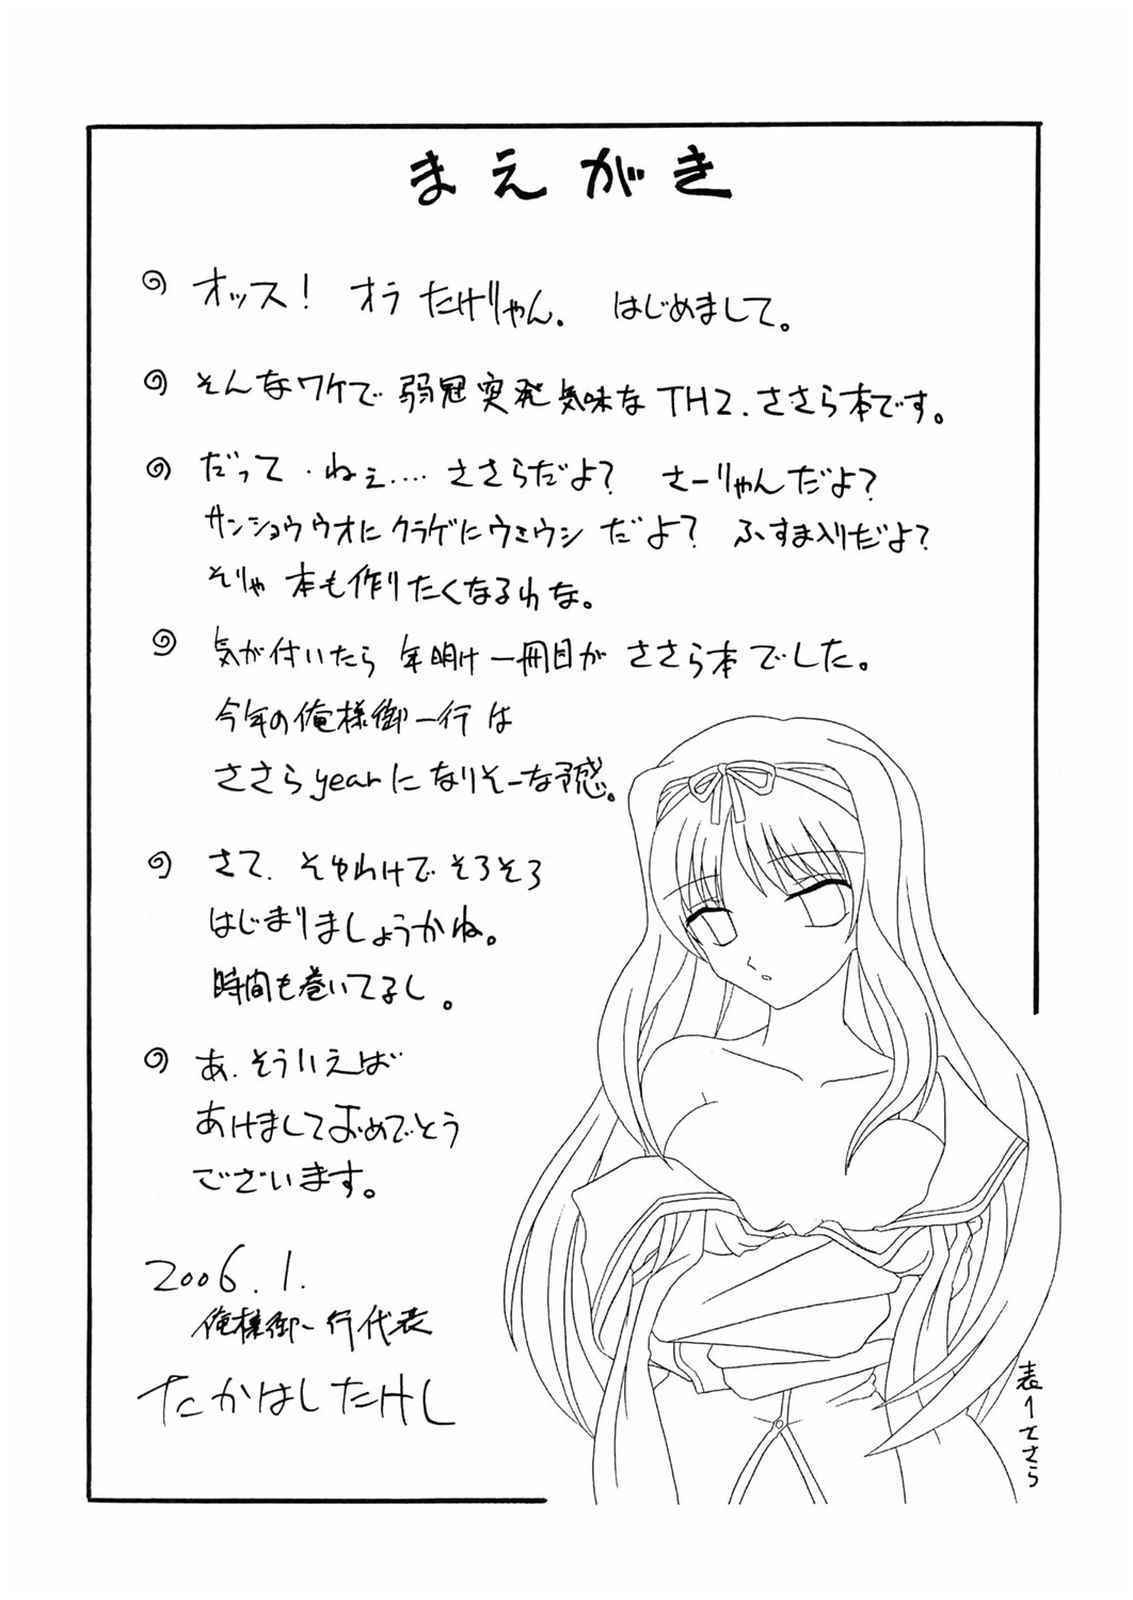 まえがき
オッス! オラ たけりゃん. はじめまして。
そんなワケで 弱冠突発気味な TH2.ささら本です。
だって・ねぇ‥‥ ささらだよ? さーりゃんだよ?
サンショウウオにクラゲにウミウシだよ? ふすま入りだよ?
そりゃ 本も作りたくなるわな。
気が付いたら 年明け一冊目が ささら本でした。
今年の俺様御一行は
ささらyearになりそーな予感。
さて. そゆわけで そろそろ
はじまりましょうかね。
時間も巻いてるし。
あ.そういえば
あけましておめでとう
ございます。
2006.1.
俺様御一行代表
たかはしたけし